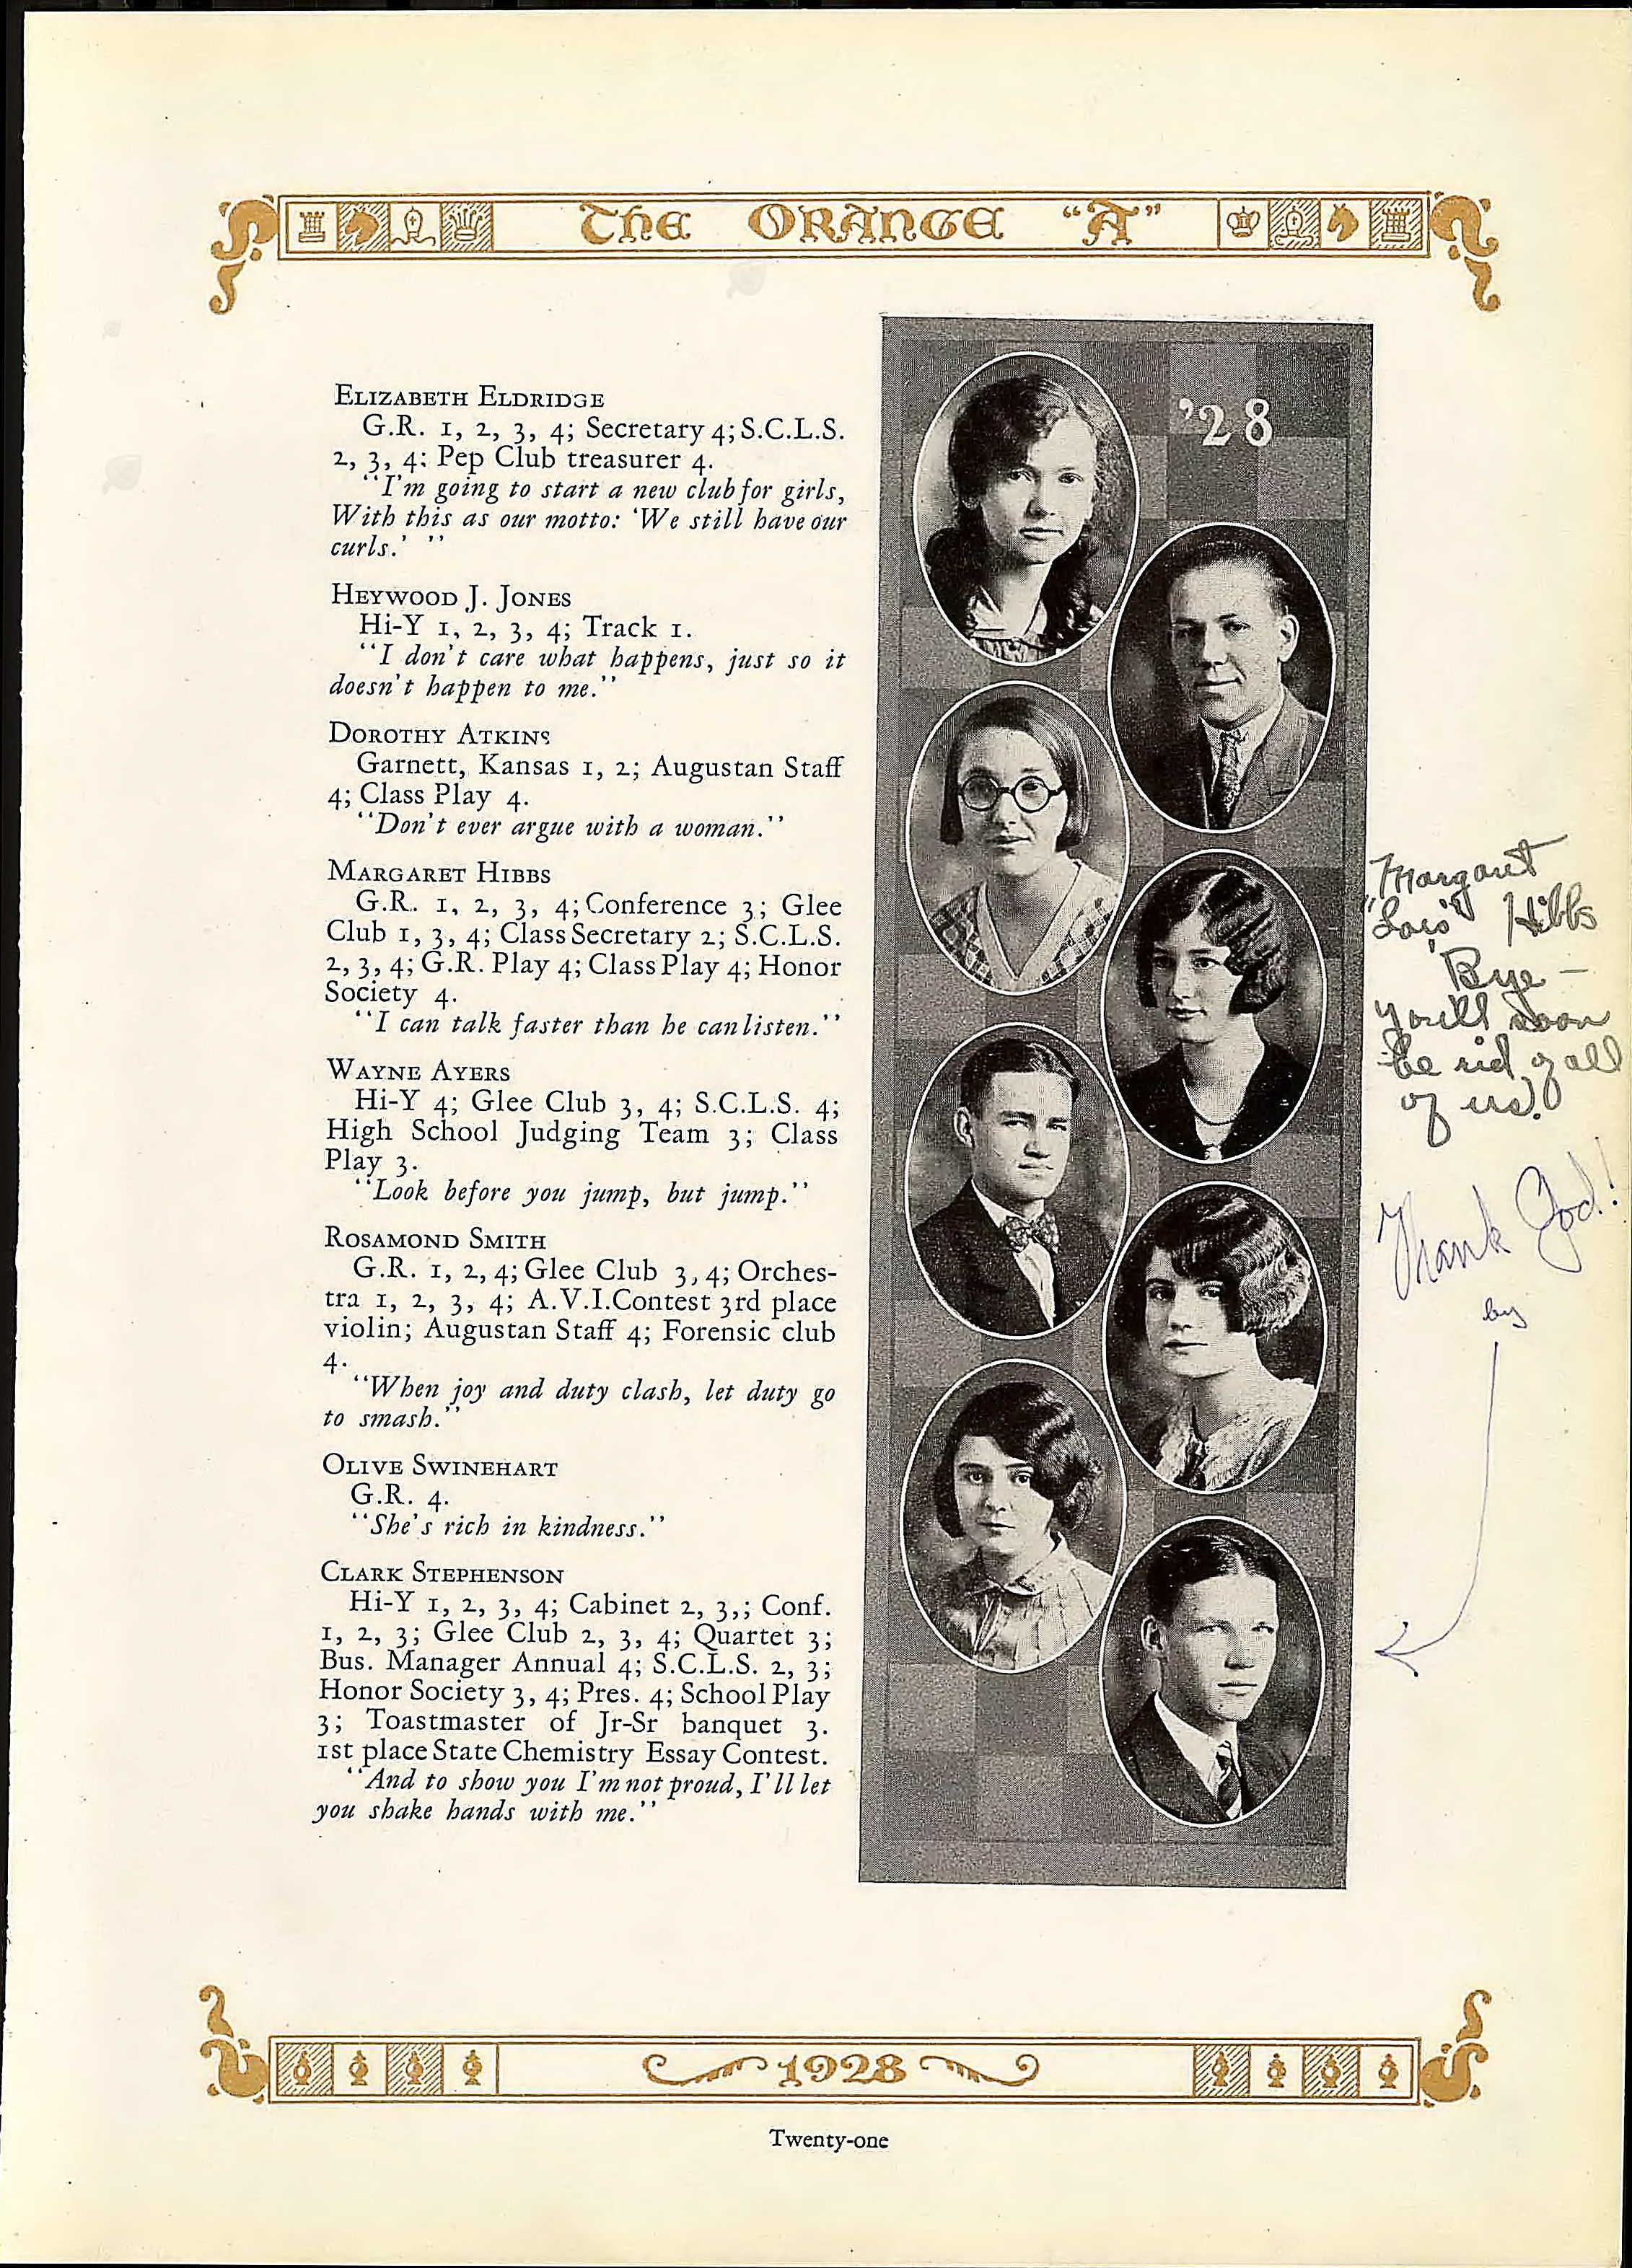 The Orange "A"
'28
Elizabeth Eldridge
G.R. 1, 2, 3, 4; Secretary 4; S.C.L.S.
2, 3, 4: Pep Club treasurer 4.
"I'm going to start a new club for girls,
With this as our motto: 'We still have our
curls.' "
Heywood J. Jones
Hi-Y 1, 2, 3, 4; Track 1.
"I don't care what happens, just so it
doesn't happen to me."
Dorothy Atkins
Garnett, Kansas 1, 2; Augustan Staff
4; Class Play 4.
"Don't ever argue with a woman."
Margaret Hibbs
G.R. 1, 2, 3, 4; Conference 3; Glee
Club 1, 3, 4; Class Secretary 2; S.C.L.S.
2, 3, 4; G.R. Play 4; Class Play 4; Honor
Society 4.
"I can talk faster than he can listen."
Wayne Ayers
Hi-Y 4; Glee Club 3, 4; S.C.L.S. 4;
High School Judging Team 3; Class
Play 3.
"Look before you jump, but jump."
Rosamond Smith
G.R. 1, 2, 4; Glee Club 3, 4; Orches-
tra 1, 2, 3, 4; A.V.I. Contest 3rd place
violin; Augustan Staff 4; Forensic club
4.
"When joy and duty clash, let duty go
to smash."
Olive Swinehart
G.R. 4.
"She's rich in kindness."
Clark Stephenson
Hi-Y 1, 2, 3, 4; Cabinet 2, 3,; Conf.
1, 2, 3; Glee Club 2, 3, 4; Quartet 3;
Bus. Manager Annual 4; S.C.L.S. 2, 3;
Honor Society 3, 4; Pres. 4; School Play
3; Toastmaster of Jr-Sr banquet 3.
1st place State Chemistry Essay Contest.
"And to show you I'm not proud, I'll let
you shake hands with me."
Margaret
"Lois" Hibbs
Bye —
you'll soon
be rid of all
of us!
Thank God!
by
1928
Twenty-one